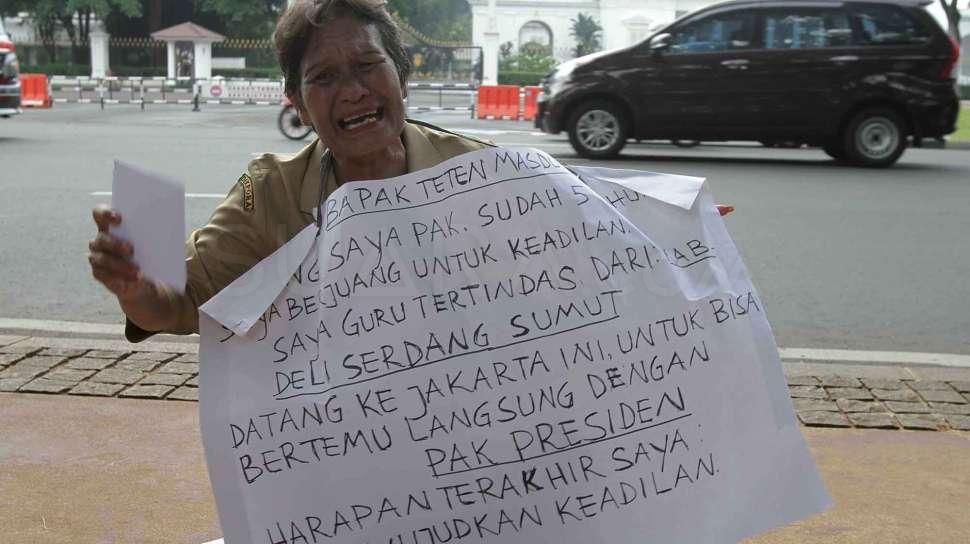 BAPAK TETEN
SAYA PAK. SUDAH 5
BEJUANG UNTUK KEADILAN.
SAYA GURU TERTINDAS DARI: KAB.
DELI SERDANG SUMUT
DATANG KE JAKARTA INI, UNTUK BISA
BERTEMU LANGSUNG DENGAN
PAK PRESIDEN
HARAPAN TERAKHIR SAYA:
KEADILAN.